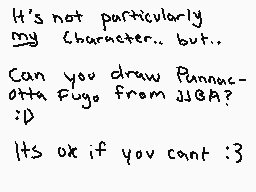 It's not particularly
my Character.. but..
Can you draw Pannac-
otta Fugo from JJBA?
:D
Its ok if you cant :3